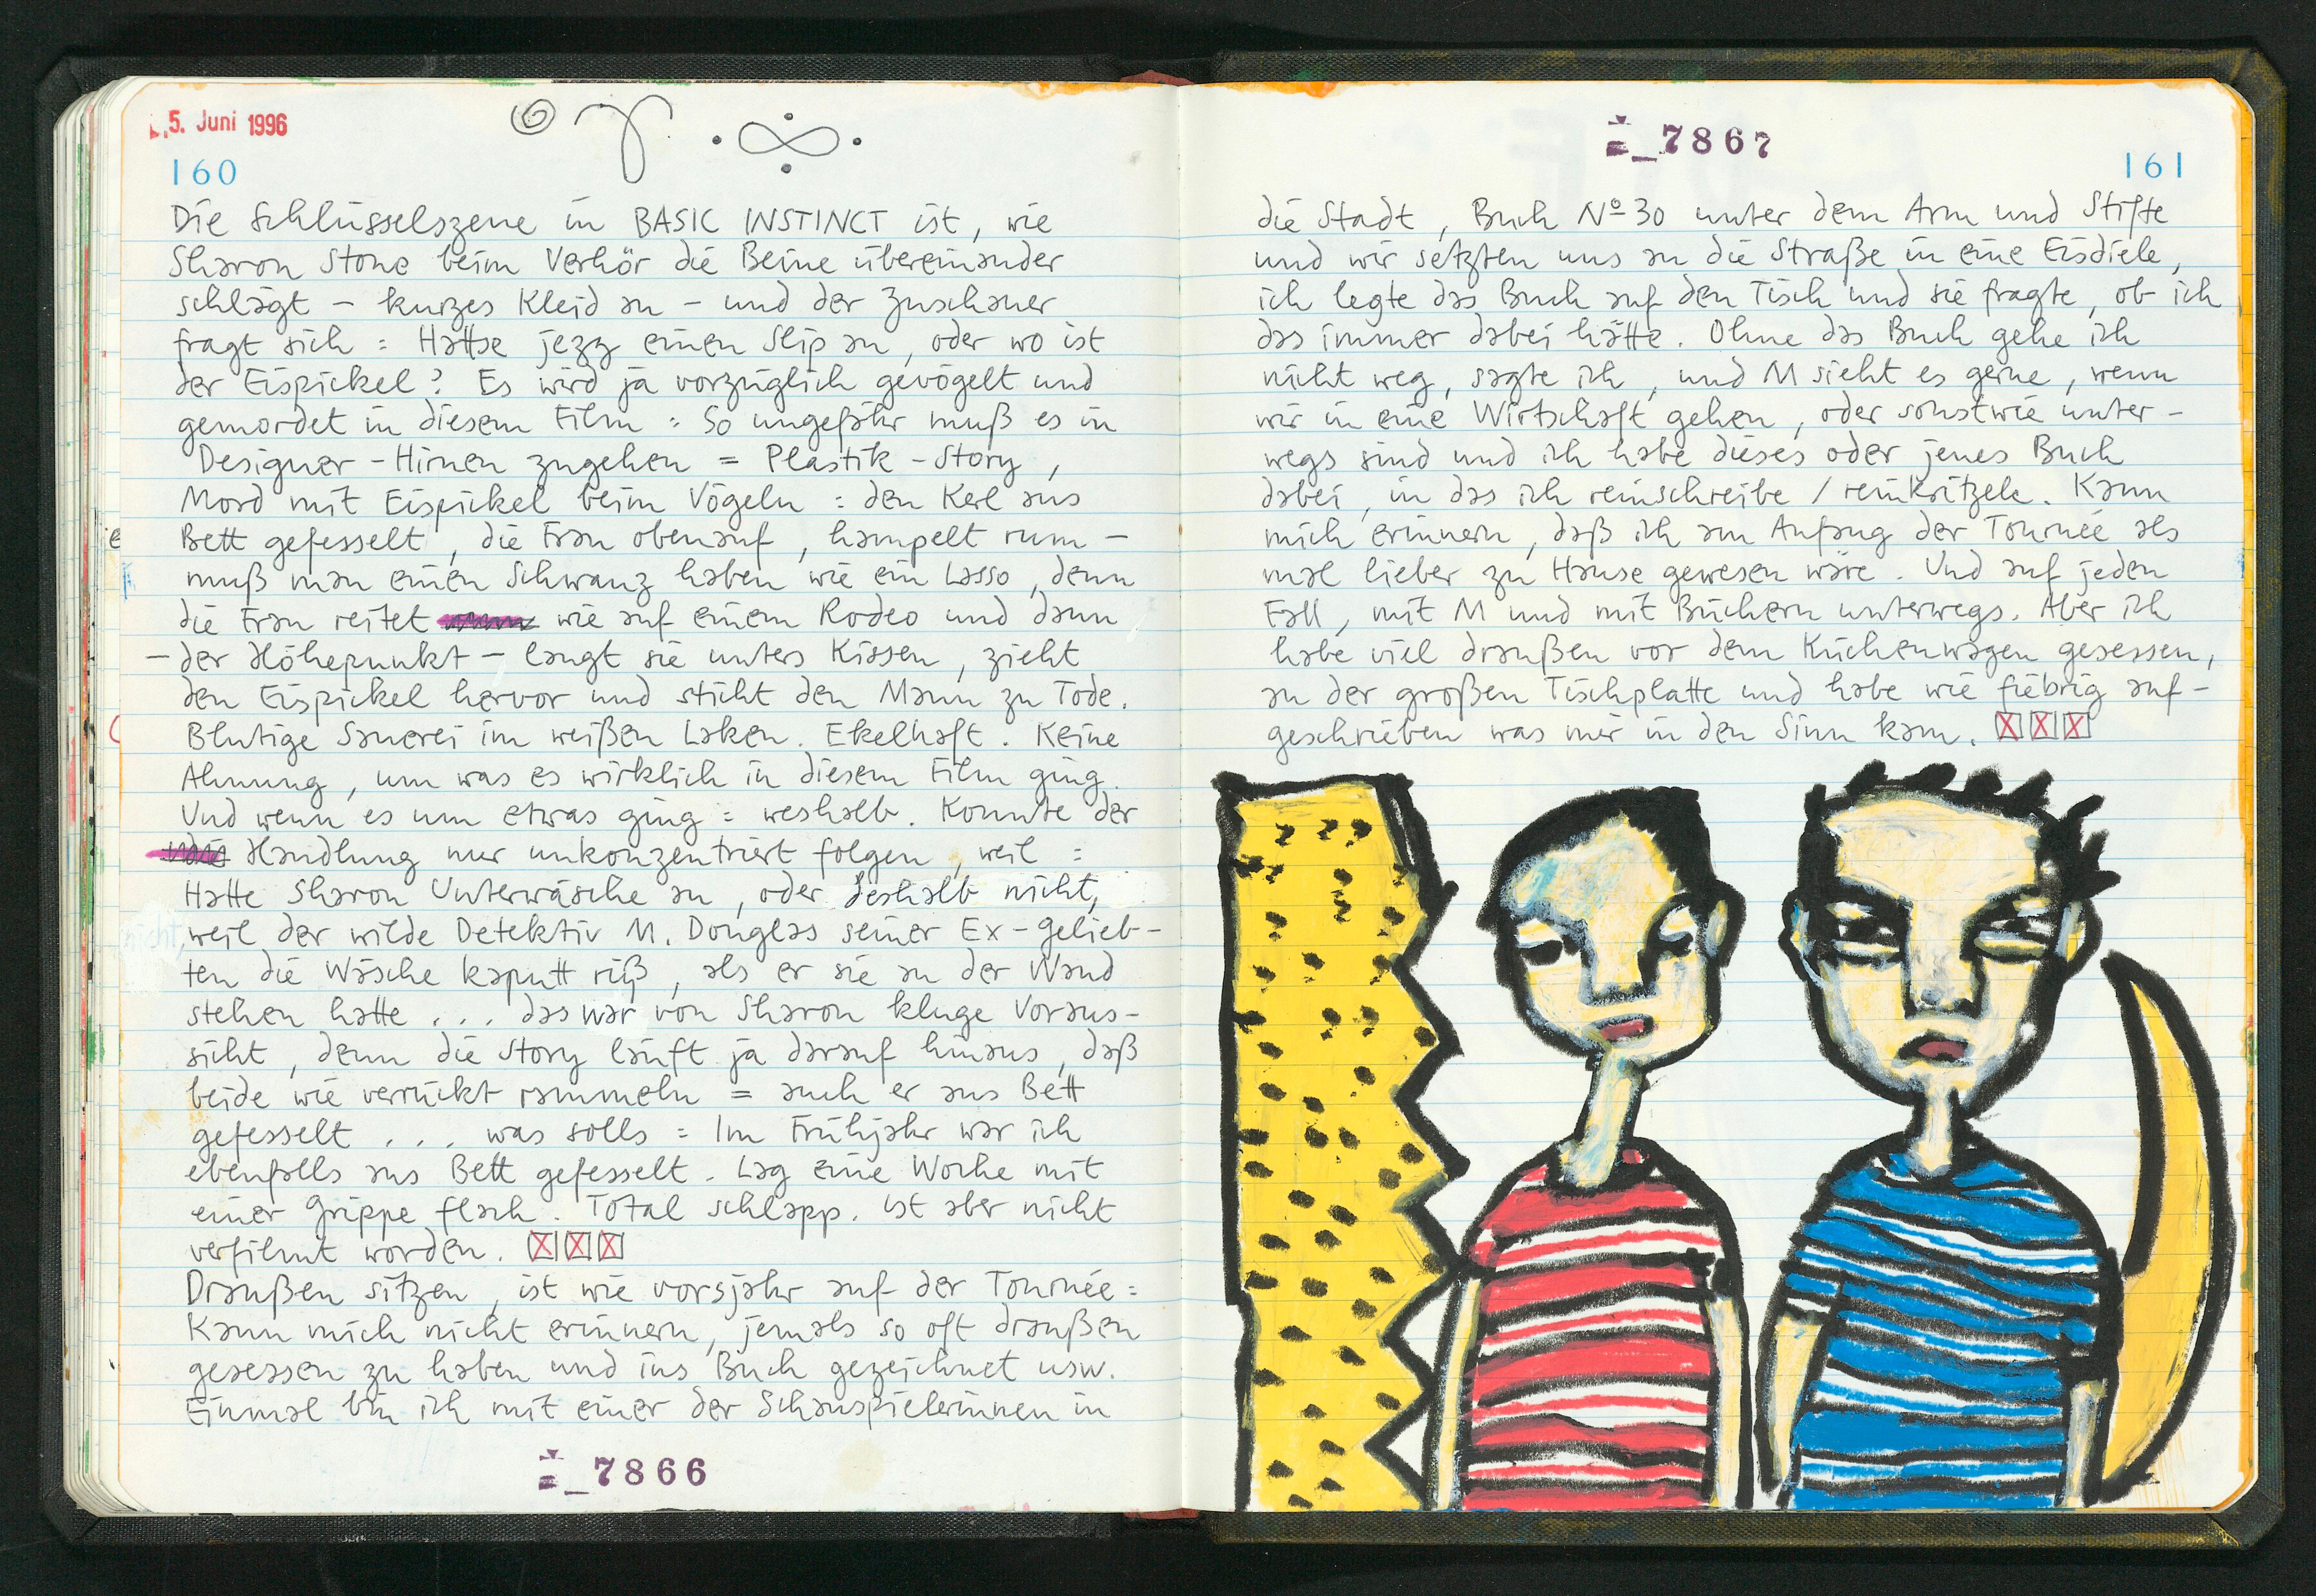 5. Juni 1996
160
Die Schlüsselszene in BASIC INSTINCT ist, wie
Sharon Stone beim Verhör die Beine übereinander
schlägt – kurzes Kleid an – und der Zuschauer
fragt sich : Hattse jezz einen Slip an, oder wo ist
der Eispickel? Es wird ja vorzüglich gevögelt und
gemordet in diesem Film : So ungefähr muß es in
Designer-Hirnen zugehen = Plastik-Story,
Mord mit Eispickel beim Vögeln : den Kerl ans
Bett gefesselt, die Frau obenauf, hampelt rum –
muß man einen Schwanz haben wie ein Lasso, denn
die Frau reitet wie auf einem Rodeo und dann
– der Höhepunkt – langt sie unters Kissen, zieht
den Eispickel hervor und sticht den Mann zu Tode.
Blutige Sauerei im weißen Laken. Ekelhaft. Keine
Ahnung, um was es wirklich in diesem Film ging.
Und wenn es um etwas ging : weshalb. Konnte der
Handlung nur unkonzentriert folgen, weil :
Hatte Sharon Unterwäsche an, oder deshalb nicht,
weil der wilde Detektiv M. Douglas seiner Ex-Gelieb-
ten die Wäsche kaputt riß, als er sie an der Wand
stehen hatte . . . das war von Sharon kluge Voraus-
sicht, denn die Story läuft ja darauf hinaus, daß
beide wie verrückt rammeln = auch er ans Bett
gefesselt . . . was solls : Im Frühjahr war ich
ebenfalls ans Bett gefesselt. Lag eine Woche mit
einer Grippe flach. Total schlapp. Ist aber nicht
verfilmt worden. ☒☒☒
Draußen sitzen, ist wie vorsjahr auf der Tournée :
Kann mich nicht erinnern, jemals so oft draußen
gesessen zu haben und ins Buch gezeichnet usw.
Einmal bin ich mit einer der Schauspielerinnen in
7866
7867
161
die Stadt, Buch Nº 30 unter dem Arm und Stifte
und wir setzten uns an die Straße in eine Eisdiele,
ich legte das Buch auf den Tisch und sie fragte, ob ich
das immer dabei hätte. Ohne das Buch gehe ich
nicht weg, sagte ich, und M sieht es gerne, wenn
wir in eine Wirtschaft gehen, oder sonstwie unter-
wegs sind und ich habe dieses oder jenes Buch
dabei, in das ich reinschreibe / reinkritzele. Kann
mich erinnern, daß ich am Anfang der Tournée als
mal lieber zu Hause gewesen wäre. Und auf jeden
Fall, mit M und mit Büchern unterwegs. Aber ich
habe viel draußen vor dem Küchenwagen gesessen,
an der großen Tischplatte und habe wie fiebrig auf-
geschrieben was mir in den Sinn kam. ☒☒☒